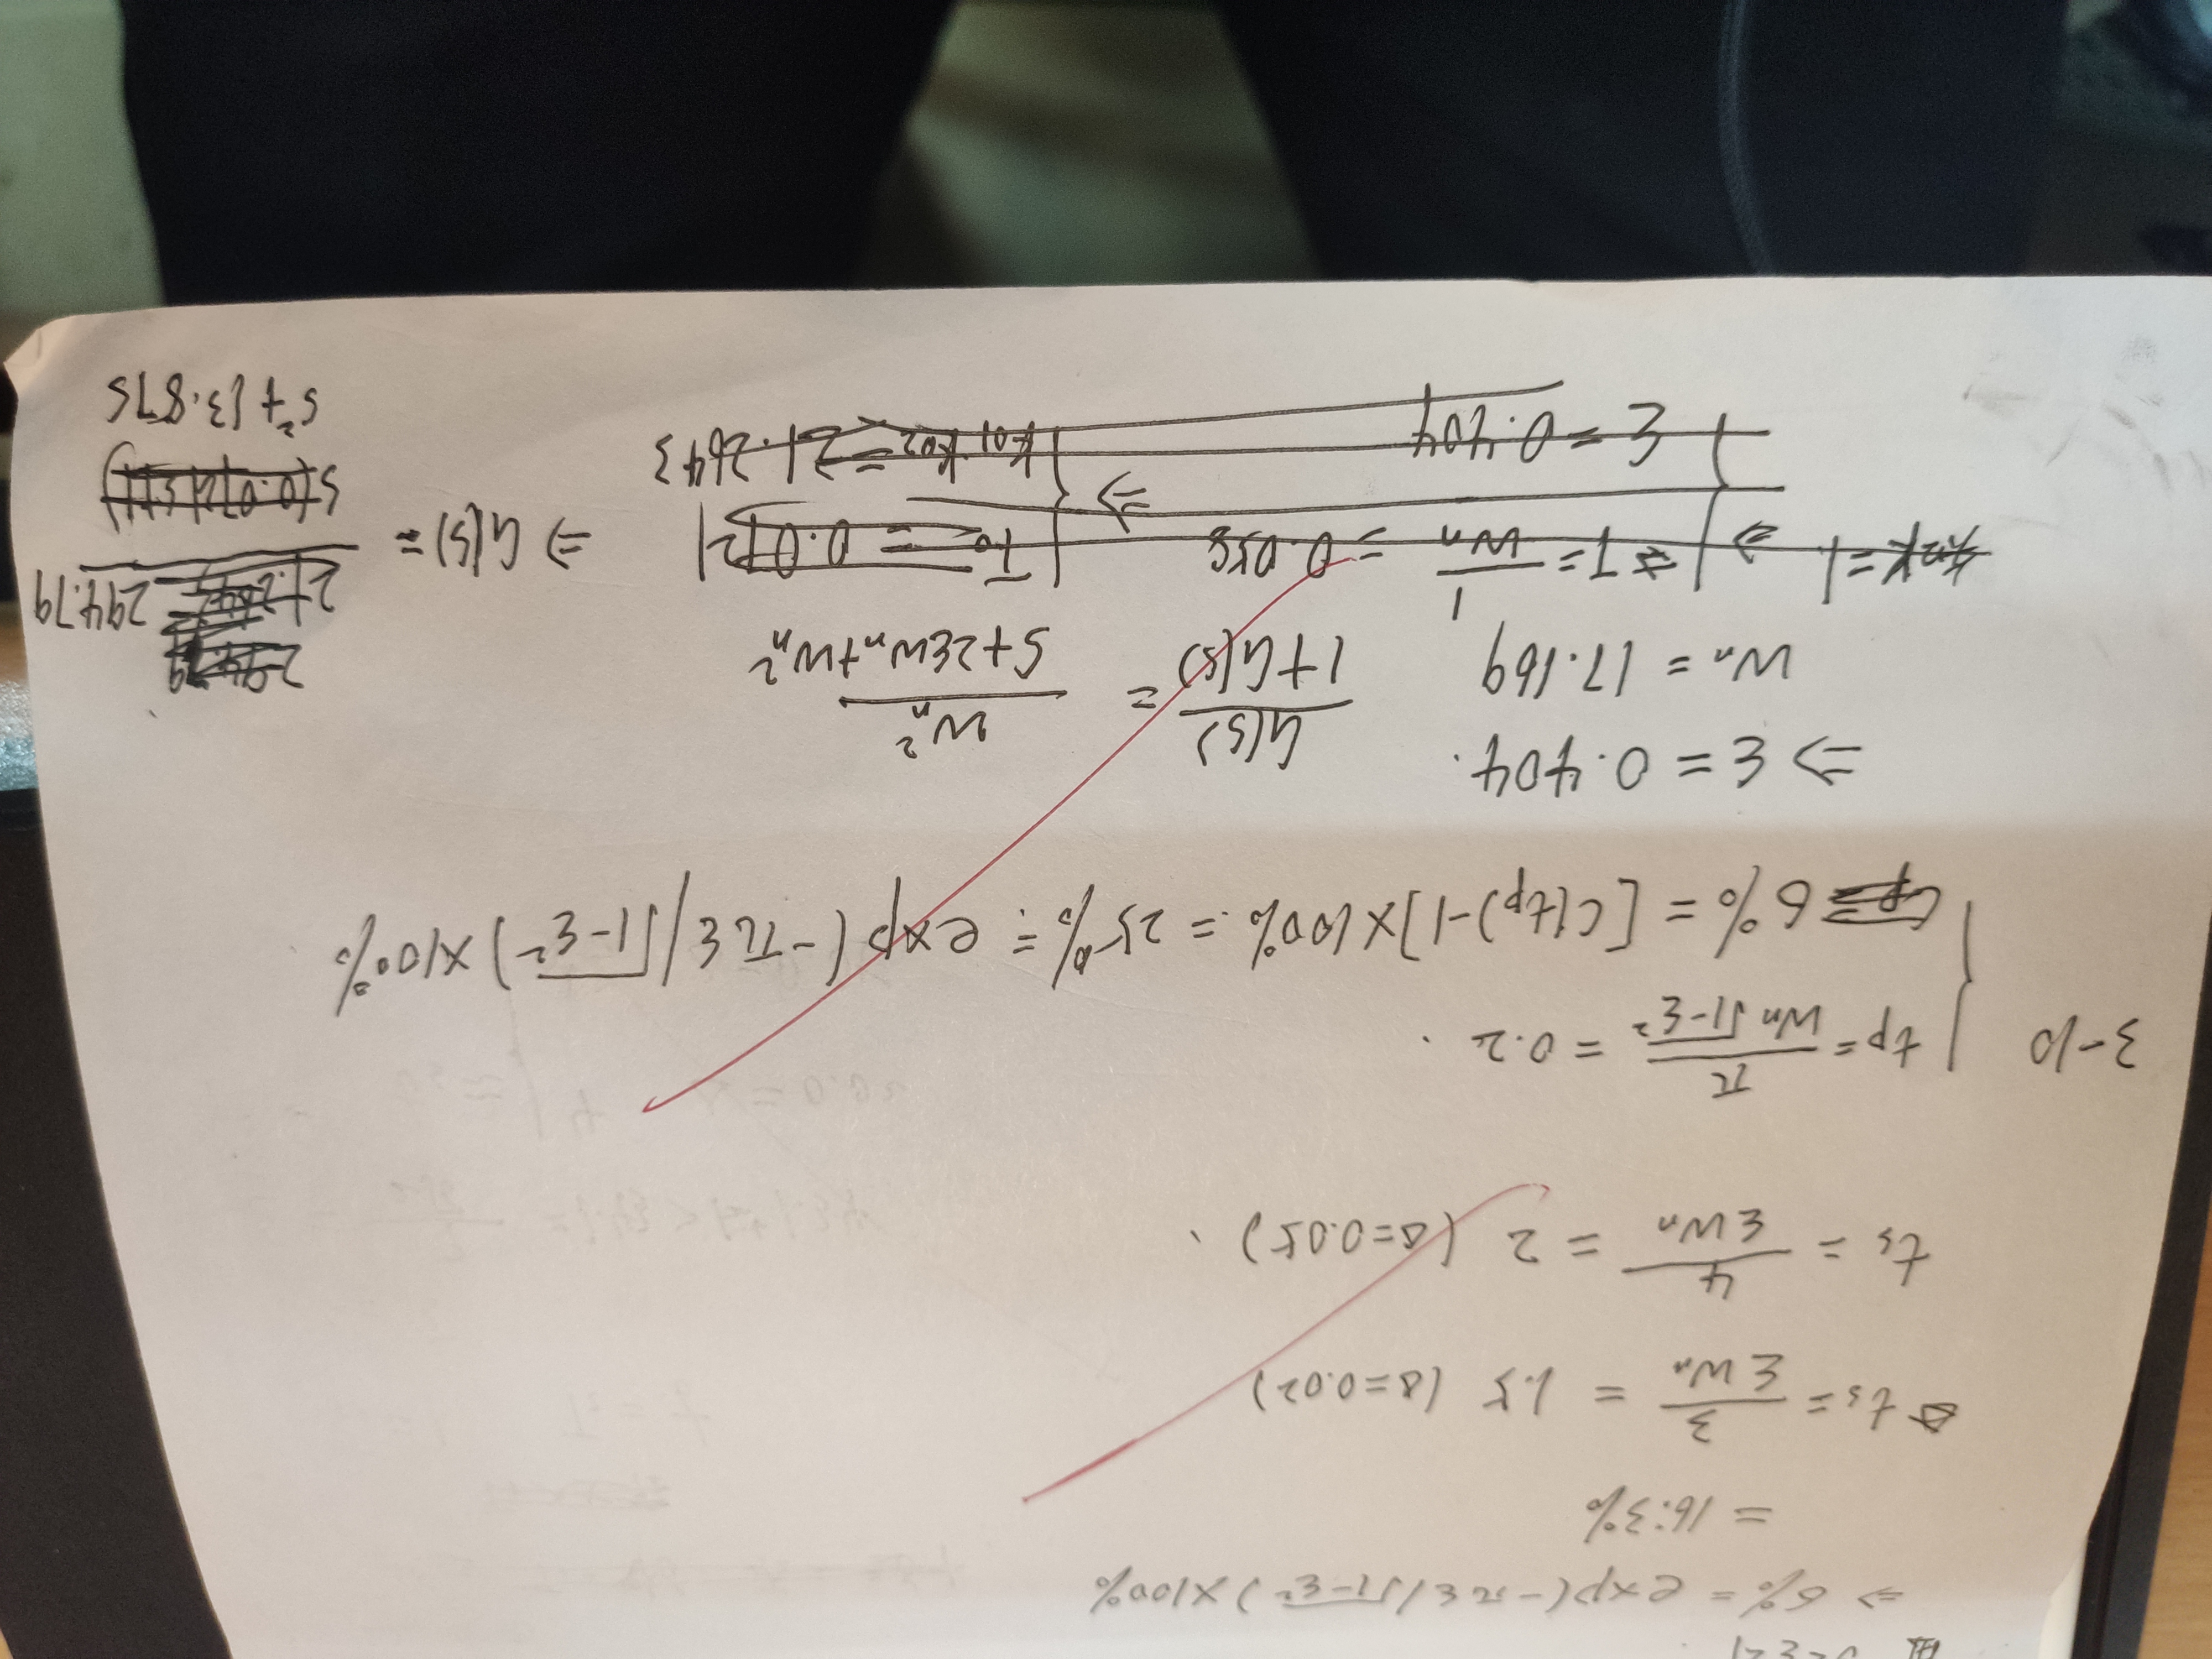 ⇒ σ% = exp(-πξ/√1-ξ²) ×100%
= 16.3%
ts = 3/ξWn = 1.5 (Δ=0.02)
ts = 4/ξWn = 2 (Δ=0.05).
3-10 { tp = π/Wn√1-ξ² = 0.2.
σ% = [C(tp)-1]×100% = 25% = exp(-πξ/√1-ξ²)×100%
⇒ ξ = 0.404.
Wn = 17.169
G(s)/1+G(s) = Wn²/S+2ξWn+Wn²
知K=1. ⇒ { ⇒ T = 1/Wn = 0.058
ξ = 0.404
⇒ { T0 = 0.0721
K01 K02 = 21.2643
⇒ G(s) = 294.79/s²+13.87s